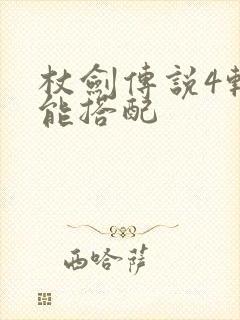 杖劍傳説4轉
能搭配
西哈薩